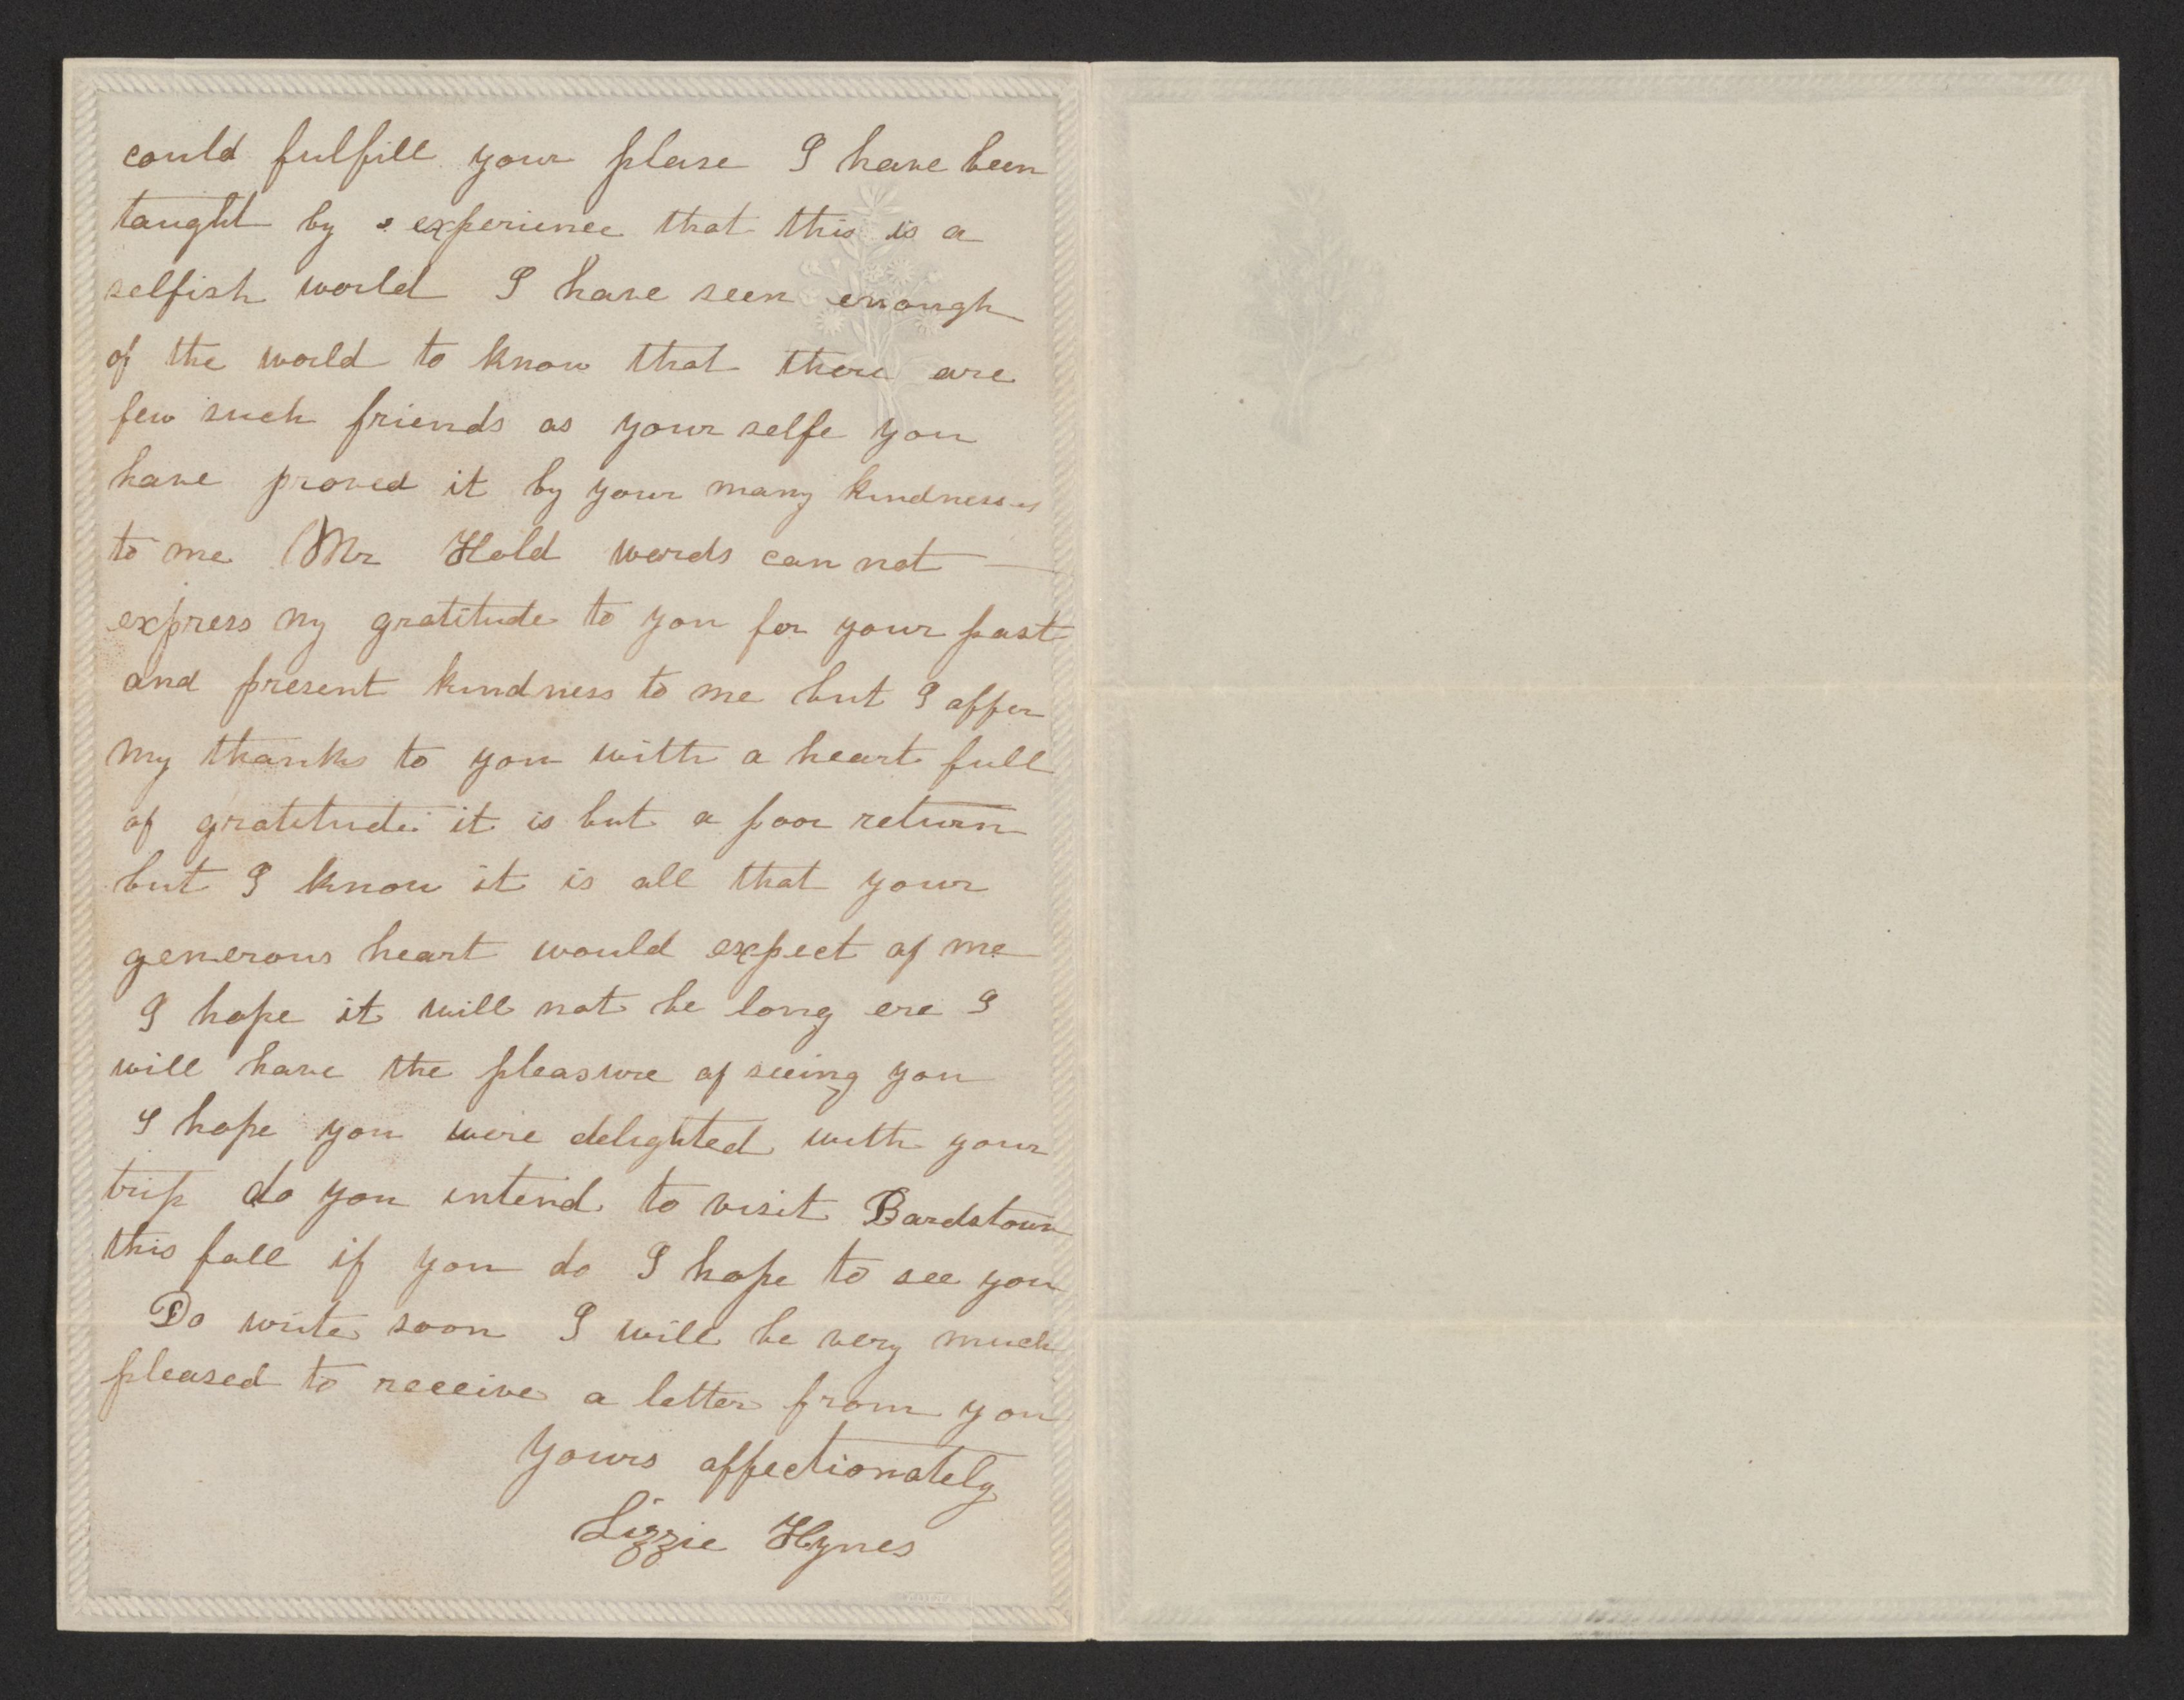 could fulfill your plase I have been
taught by experience that this is a
selfish world I have seen enough
of the world to know that there are
few such friends as your selfe you
have proved it by your many kindnesses
to me Mr Hold words can not
express my gratitude to you for your past
and present kindness to me but I offer
my thanks to you with a heart full
of gratitude it is but a poor return
but I know it is all that your
generous heart would expect of me
I hope it will not be long ere I
will have the pleasure of seeing you
I hope you were delighted with your
trip do you intend to visit Bardstown
this fall if you do I hope to see you
Do write soon I will be very much
pleased to receive a letter from you
Yours affectionately
Lizzie Hynes